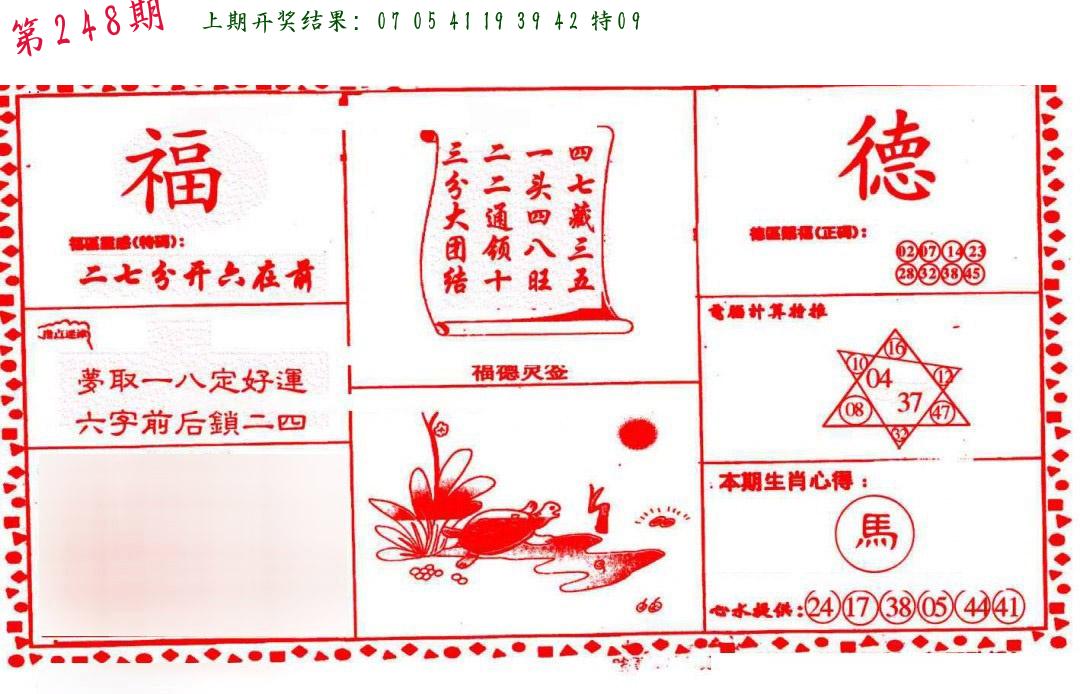 第248期
上期开奖结果：07 05 41 19 39 42 特09
福
福區靈感(特碼)：
二七分开六在前
指点迷津
夢取一八定好運
六字前后鎖二四
四七藏三五
一头四八旺
二二通领十
三分大团结
福德灵签
德
德區賜福(正碼)：
02 07 14 23
28 32 38 45
電腦計算榜推
16
10 04 12
08 37 47
32
本期生肖心得：
馬
心水提供：24 17 38 05 44 41